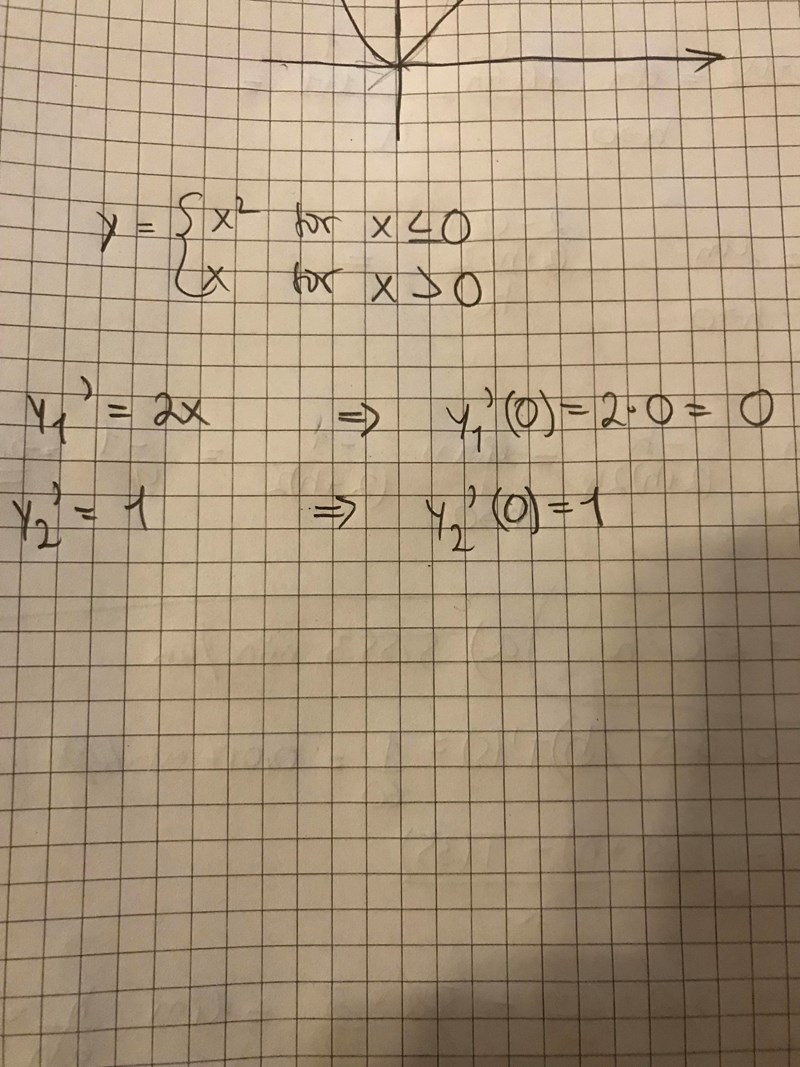 y = { x² for x ≤ 0
x for x > 0
y₁' = 2x ⇒ y₁'(0) = 2·0 = 0
y₂' = 1 ⇒ y₂'(0) = 1